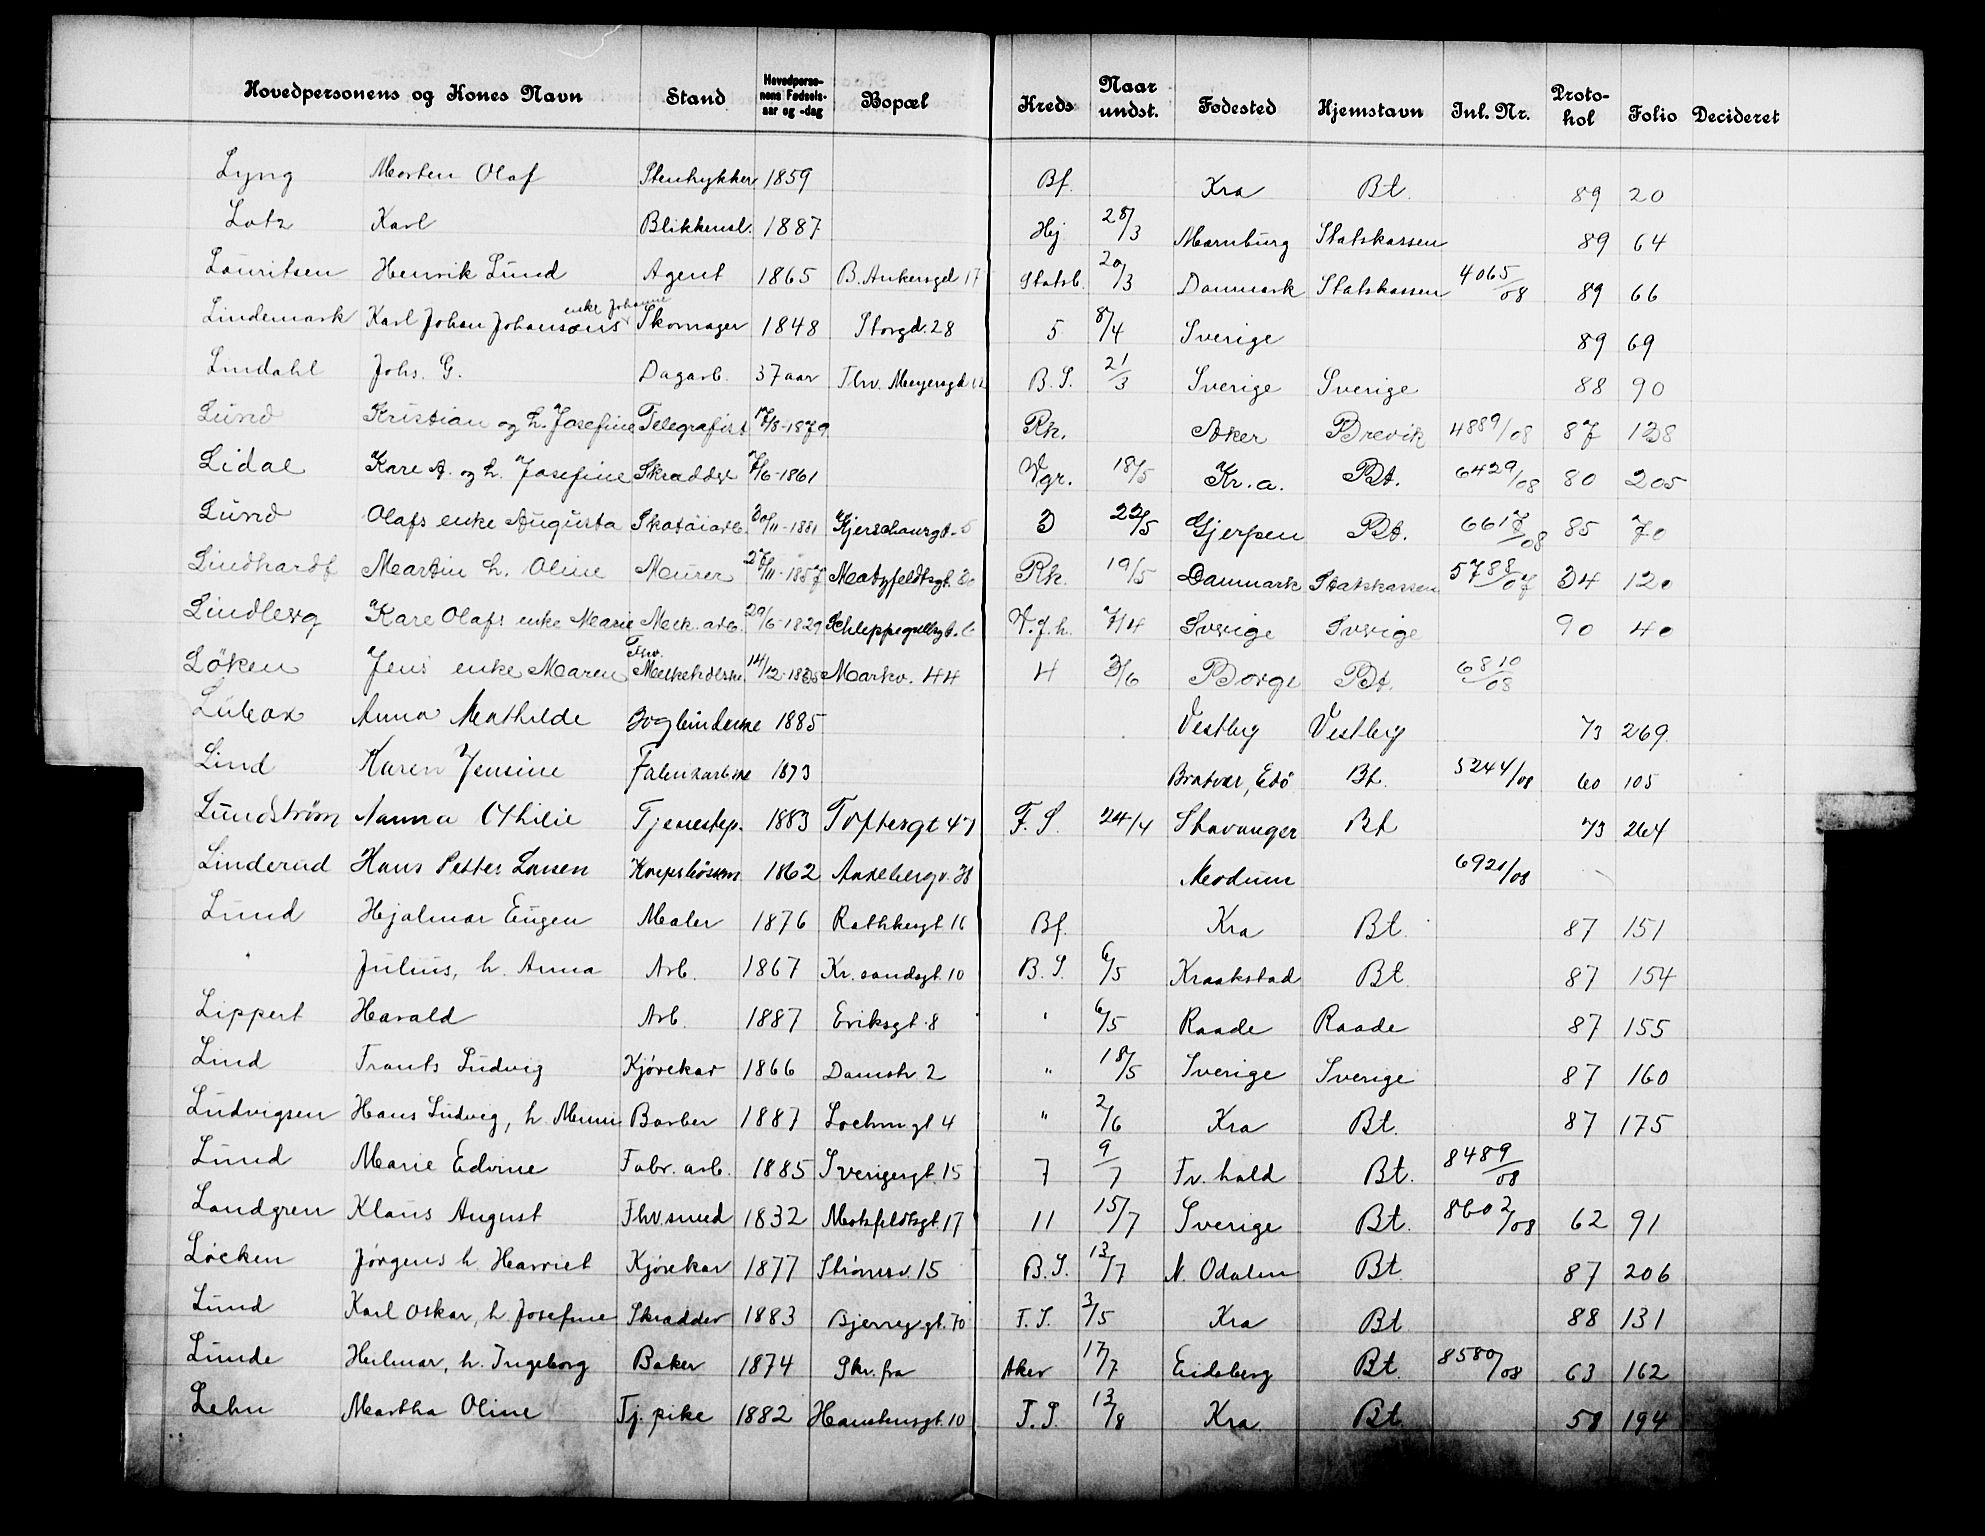 Hovedpersonens og Kones Navn Stand Hovedperso-nens Fødsels-aar og -dag Bopæl Kreds Naar undst. Fødested Hjemstavn Inl. Nr. Proto-hol Folio Decideret
Lyng Morten Olaf Stenhykker 1859 Bf. Kra Bt. 89 20
Lotz Karl Blikkensl. 1887 Hj 28/3 Marnburg Statskassen 89 64
Lauritsen Henrik Lund Agent 1865 B. Ankersgd 17 Statsb. 20/3 Danmark Statskassen 4065/08 89 66
Lindemark Karl Johan Johansens enke Johanne Skomager 1848 Storgd. 28 5 8/4 Sverige 89 69
Lindahl Johs. G. Dagarb. 37 aar Thv. Meyersgd 12 B. S. 21/3 Sverige Sverige 88 90
Lund Kristian og h. Josefine Telegrafist 17/8-1879 Rh. Aker Brevik 4889/08 87 138
Lidal Kare A. og h. Josefine Skradder 7/6-1861 Vgr. 18/5 Kr.a. Bt. 6429/08 80 205
Lund Olafs enke Augusta Skotøiarb. 30/11-1881 Kjerschausgt. 5 3 22/5 Gjerpen Bt. 6617/08 85 70
Lindhardt Martin h. Oline Murer 27/11-1857 Motzfeldtsgt. 30 Rh. 19/5 Danmark Statskassen 5788/07 34 120
Lindberg Kare Olafs enke Marie Mek. arb. 29/6-1829 Schleppegrellsgt. 6 V.f.h. 7/4 Sverige Sverige 90 40
Løken Jens enke Maren Fhv. Melkehdlske 14/12-1835 Markv. 44 4 3/6 Borge Bt. 6810/08
Anna Mathilde Bogbinderske 1885 Vestby Vestby 73 269
Lind Karen Jensine Fabrikarbske 1873 Bratvær, Edö Bt. 5244/08 60 105
Lundstrøm Nanna Othilie Tjenestep. 1883 Toftesgt 47 F. S. 24/4 Stavanger Bt 73 264
Linderud Hans Petter Larsen 1862 Modum 6921/08
Lund Hjalmar Eugen Maler 1876 Rathkesgt. 16 Bf. Kra Bt. 87 151
" Julius, h. Anna Arb. 1867 Kr.sandsgt. 10 B. S. 6/5 Kraakstad Bt. 87 154
Lippert Harald Arb. 1887 Eriksgt. 8 " 6/5 Raade Raade 87 155
Lind Frants Ludvig Kjørekar 1866 Damstr. 2 " 18/5 Sverige Sverige 87 160
Ludvigsen Hans Ludvig, h. Minni Barber 1887 Lochmgt 4 " 2/6 Kra Bt. 87 175
Lund Marie Edvine Fabr. arb. 1885 Sverigesgt. 15 7 9/7 Fr. hald Bt. 8489/08
Landgren Klaus August Fhv. smed 1832 Motsfeldtsgt. 17 11 15/7 Sverige Bt. 8602/08 62 91
Løcken Jørgens h. Harriet Kjørekar 1877 Strömsv. 15 B. S. 13/7 N. Odalen Bt. 87 206
Lund Karl Oskar, h. Josefine Skradder 1883 Bjerregt. 70 F. S. 3/5 Kra Bt 88 131
Lunde Hilmar, h. Ingeborg Baker 1874 Skr. fra Aker 17/7 Eidsberg Bt. 8580/08 63 162
Lehn Martha Oline Tj. pike 1882 Hausmansgt. 10 F. S. 13/8 Kra Bt 58 194